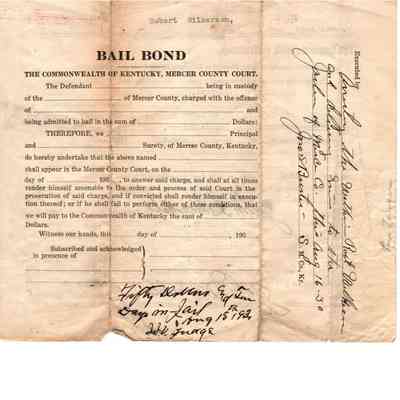 Robert Wilkerson,
BAIL BOND
THE COMMONWEALTH OF KENTUCKY, MERCER COUNTY COURT.
The Defendant being in custody
of the of Mercer County, charged with the offense
of and
being admitted to bail in the sum of Dollars:
THEREFORE, we Principal
and Surety, of Mercer County, Kentucky,
do hereby undertake that the above named
shall appear in the Mercer County Court, on the
day of 190 , to answer said charge, and shall at all times
render himself amenable to the order and process of said Court in the
prosecution of said charge, and if convicted shall render himself in execu-
tion thereof; or if he shall fail to perform either of these conditions, that
we will pay to the Commonwealth of Kentucky the sum of
Dollars.
Witness our hands, this day of , 190
Subscribed and acknowledged
in presence of
Fifty Dollars & Ten
Days in Jail
Aug 15th 192
Judge
Executed by
the within
and
Jailer of Co this Aug 16-30